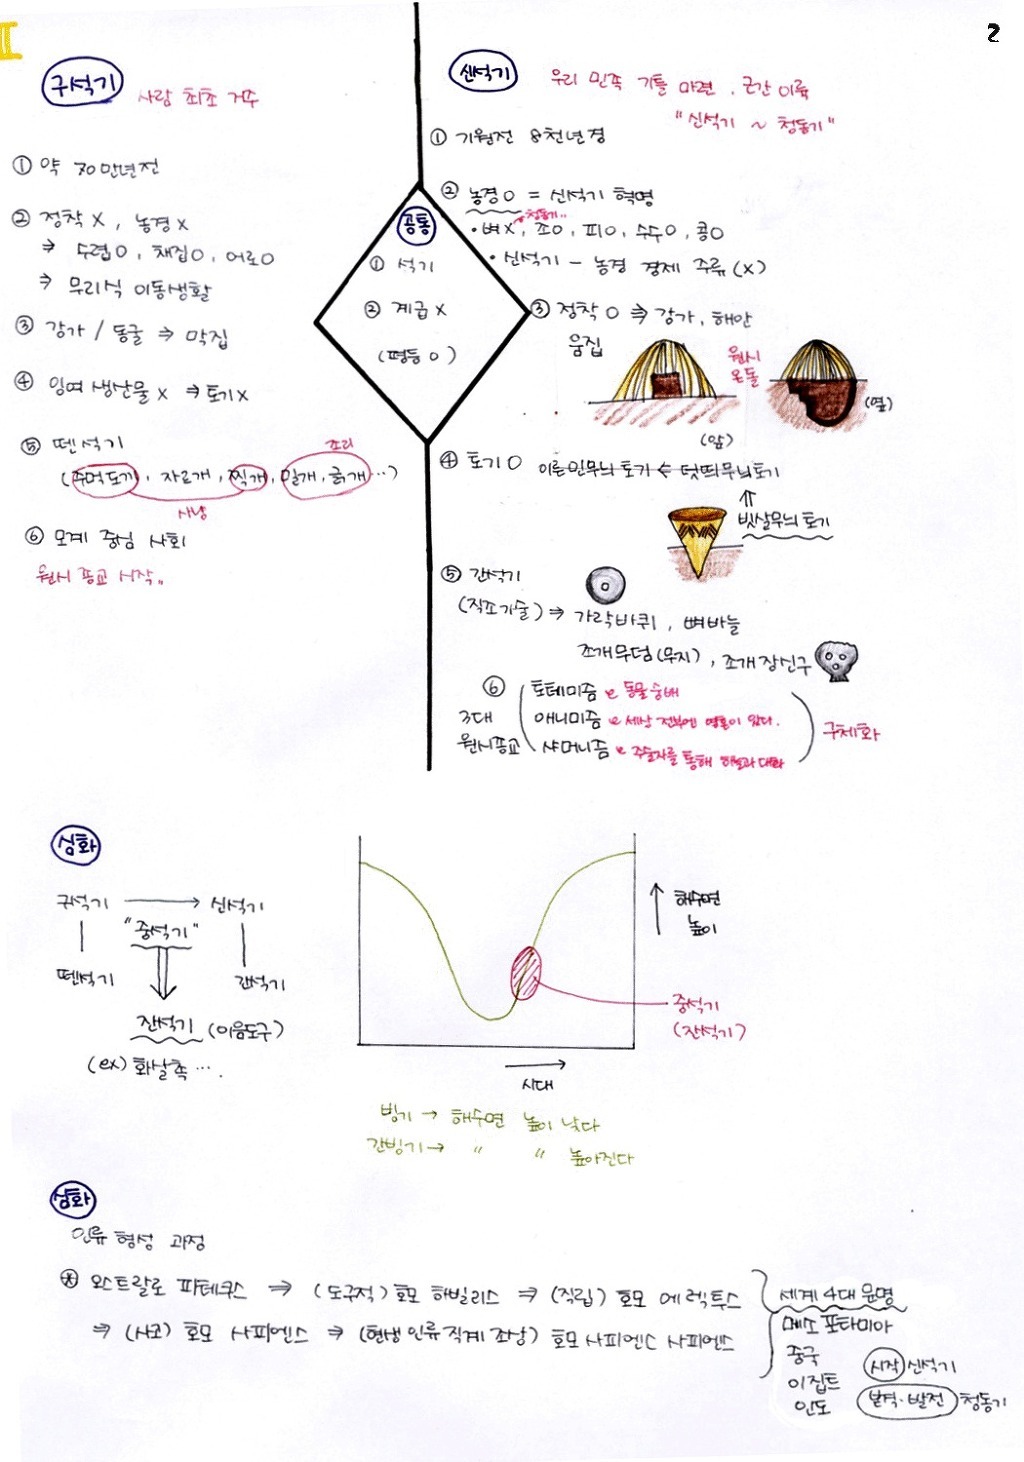 2
I
구석기 사람 최초 거주
① 약 70만년전
② 정착 X, 농경 X
⇒ 수렵O, 채집O, 어로O
⇒ 무리식 이동생활
③ 강가 / 동굴 ⇒ 막집
④ 잉여 생산물 X ⇒ 토기 X
⑤ 뗀석기
조리
(주먹도끼, 자르개, 찍개, 밀개, 긁개 …)
사냥
⑥ 모계 중심 사회
원시 종교 시작〃
공통
① 석기
② 계급 X
(평등 O)
신석기 우리 민족 기틀 마련, 근간 이룸
"신석기 ~ 청동기"
① 기원전 8천년경
② 농경 O = 신석기 혁명
청동기..
· 벼X, 조O, 피O, 수수O, 콩O
· 신석기 - 농경 경제 주류 (X)
③ 정착 O ⇒ 강가, 해안
움집
원시
온돌
(앞)
(옆)
④ 토기 O 이른민무늬 토기 ← 덧띄무늬토기
⇑
빗살무늬 토기
⑤ 간석기
(직조기술) ⇒ 가락바퀴, 뼈바늘
조개무덤(무지), 조개장신구
⑥
3대
원시종교
토테미즘 동물 숭배
애니미즘 세상 전부에 영혼이 있다.
샤머니즘 주술자를 통해 하늘과 대화
구체화
심화
구석기 → 신석기
"중석기"
뗀석기
간석기
잔석기 (이음도구)
(ex) 화살촉 ….
해수면
높이
중석기
(잔석기)
시대
빙기 → 해수면 높이 낮다
간빙기 → 〃 〃 높아진다
심화
인류 형성 과정
* 오스트랄로 피테쿠스 ⇒ (도구적) 호모 하빌리스 ⇒ (직립) 호모 에렉투스
⇒ (사고) 호모 사피엔스 ⇒ (현생 인류 직계 조상) 호모 사피엔스 사피엔스
세계 4대 문명
메소포타미아
중국
이집트
인도
시작 신석기
본격·발전 청동기